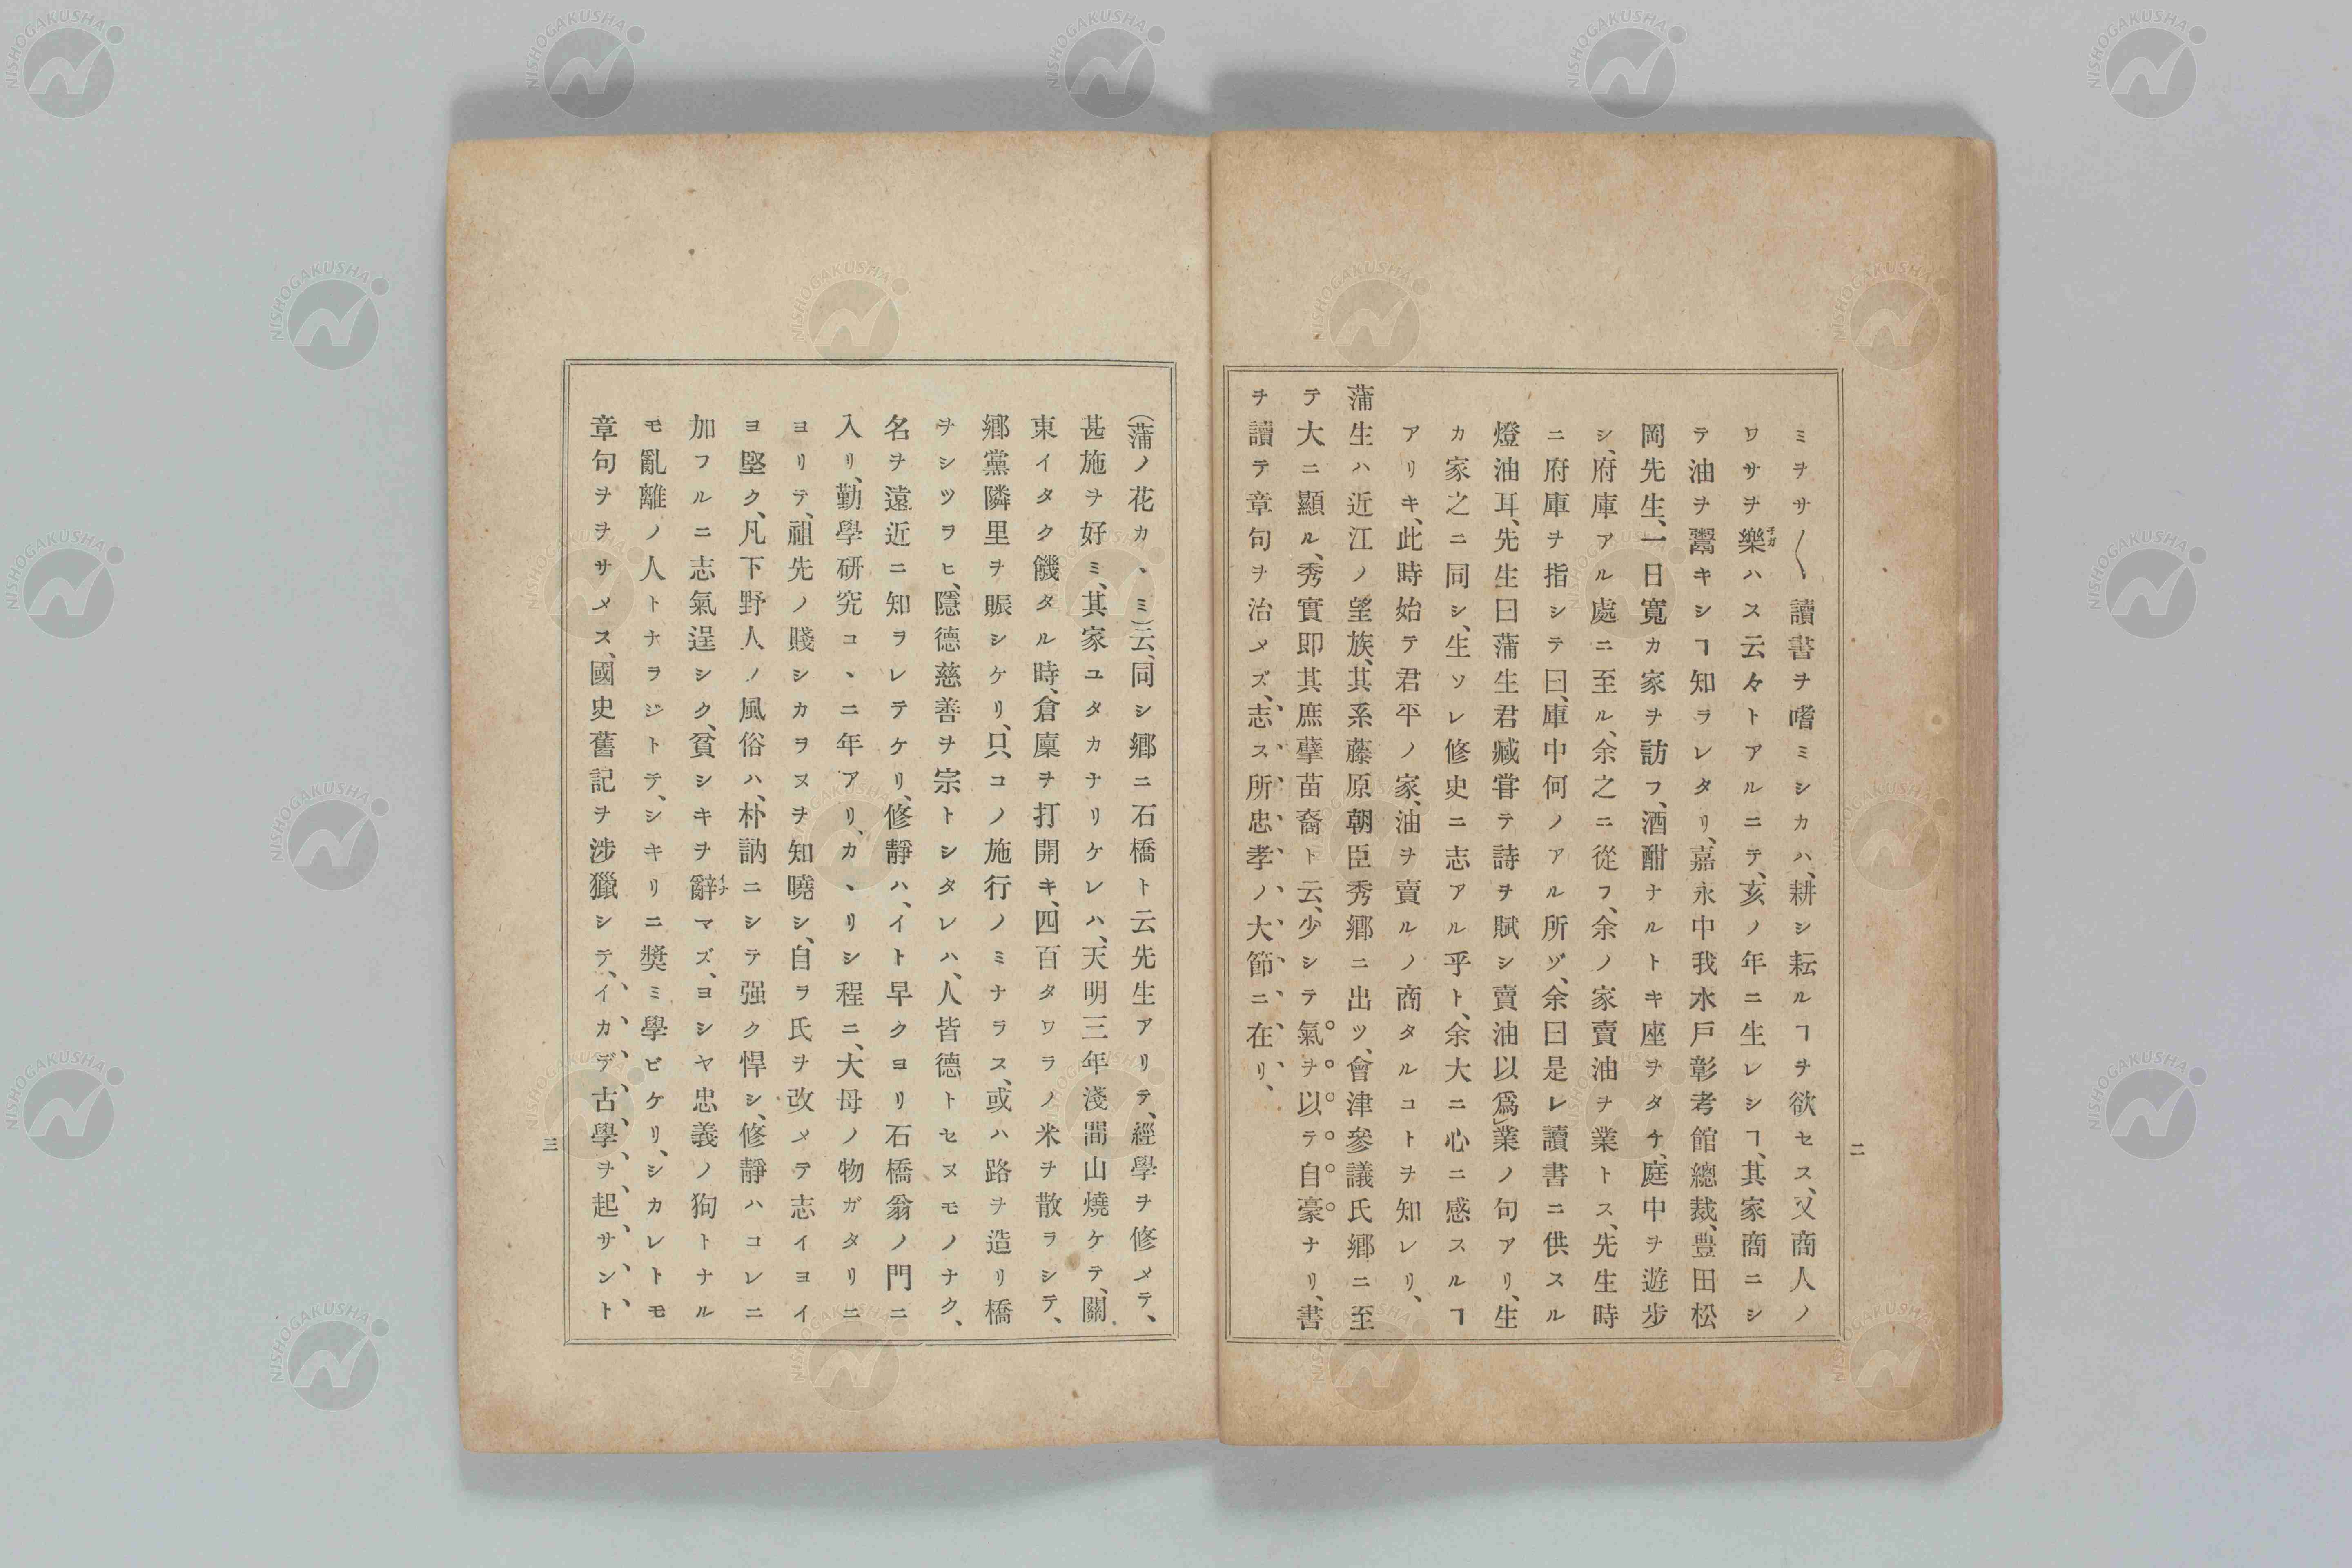 ミヲサ〱讀書ヲ嗜ミシカハ、耕シ耘ルヿヲ欲セス、又商人ノ
ワサヲ樂ハス云々トアルニテ、亥ノ年ニ生レシヿ、其家商ニシ
テ油ヲ鬻キシヿ知ラレタリ、嘉永中我水戸彰考館總裁、豊田松
岡先生、一日寛カ家ヲ訪フ、酒酣ナルトキ座ヲタチ、庭中ヲ遊步
シ、府庫アル處ニ至ル、余之ニ從フ、余ノ家賣油ヲ業トス、先生時
ニ府庫ヲ指シテ曰、庫中何ノアル所ゾ、余曰是レ讀書ニ供スル
燈油耳、先生曰蒲生君臧嘗テ詩ヲ賦シ賣油以爲業ノ句アリ、生
カ家之ニ同シ、生ソレ修史ニ志アル乎ト、余大ニ心ニ感スルヿ
アリキ、此時始テ君平ノ家、油ヲ賣ルノ商タルコトヲ知レリ、
蒲生ハ近江ノ望族、其系藤原朝臣秀郷ニ出ツ、會津參議氏郷ニ至
テ大ニ顯ル、秀實即其庶孽苗裔ト云、少シテ氣ヲ以テ自豪ナリ、書
ヲ讀テ章句ヲ治メズ、志ス所忠孝ノ大節ニ在リ、
二
(蒲ノ花カヽミ)云、同シ郷ニ石橋ト云先生アリテ、經學ヲ修メテ、
甚施ヲ好ミ、其家ユタカナリケレハ、天明三年淺間山燒ケテ、關
東イタク饑タル時、倉廩ヲ打開キ、四百タワラノ米ヲ散ラシテ、
郷黨隣里ヲ賑シケリ、只コノ施行ノミナラス、或ハ路ヲ造リ橋
ヲシツヲヒ、隱德慈善ヲ宗トシタレハ、人皆德トセヌモノナク、
名ヲ遠近ニ知ヲレテケリ、修靜ハ、イト早クヨリ石橋翁ノ門ニ
入リ、勤學研究コヽニ年アリ、カヽリシ程ニ、大母ノ物ガタリニ
ヨリテ、祖先ノ賤シカヲヌヲ知曉シ、自ラ氏ヲ改メテ志イヨイ
ヨ堅ク、凡下野人ノ風俗ハ、朴訥ニシテ强ク悍シ、修靜ハコレニ
加フルニ志氣逞シク、貧シキヲ辭マズ、ヨシヤ忠義ノ狗トナル
モ亂離ノ人トナヲジトテ、シキリニ奬ミ學ビケリ、シカレトモ
章句ヲヲサメス、國史舊記ヲ涉獵シテ、イカデ古學ヲ起サント
三